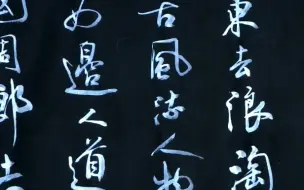 東去浪淘
古風流人物
西邊人道
國周郎赤